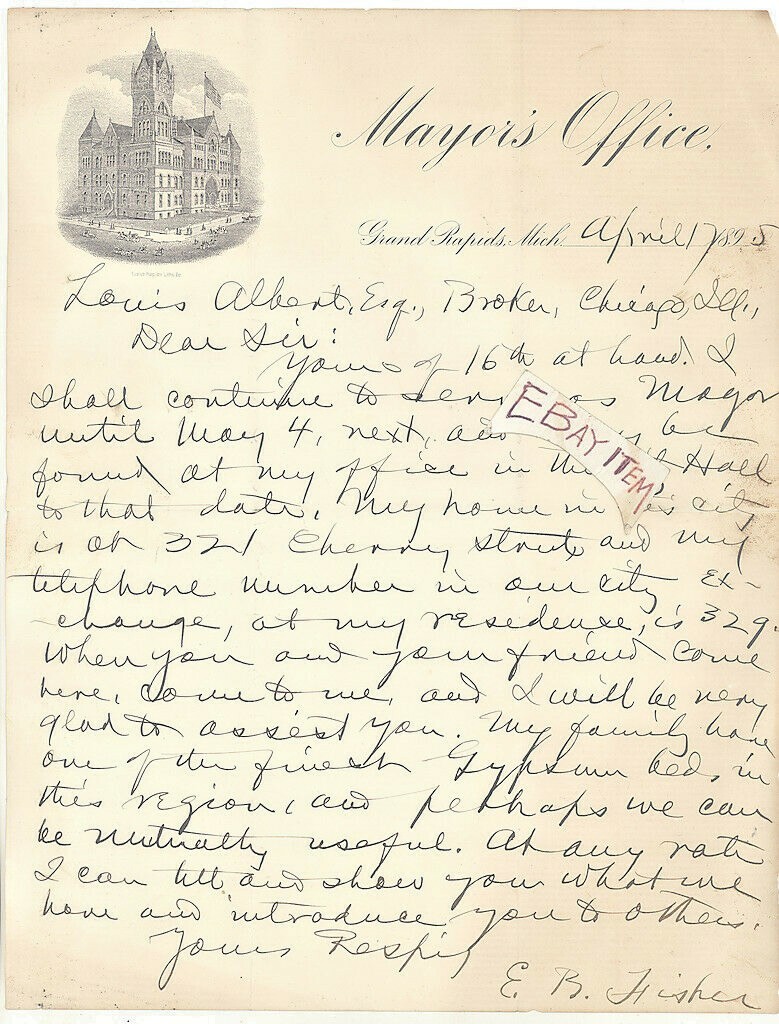 Mayor's Office.
Grand Rapids, Mich. April 17 1895
Louis Albert, Esq., Broker, Chicago, Ill.,
Dear Sir:
Yours of 16th at hand. I
shall continue to as Mayor
until May 4, next, and be
found at my office in the Hall
to that date. My home in city
is at 321 Cherry street, and my
telephone number in our city ex-
change, at my residence, is 329.
When you and your friend come
here, come to me, and I will be very
glad to assist you. My family have
one of the finest Gypsum beds in
this region, and perhaps we can
be mutually useful. At any rate
I can tell and show you what we
have and introduce you to others.
Yours Respy
E. B. Fisher
EBAY ITEM